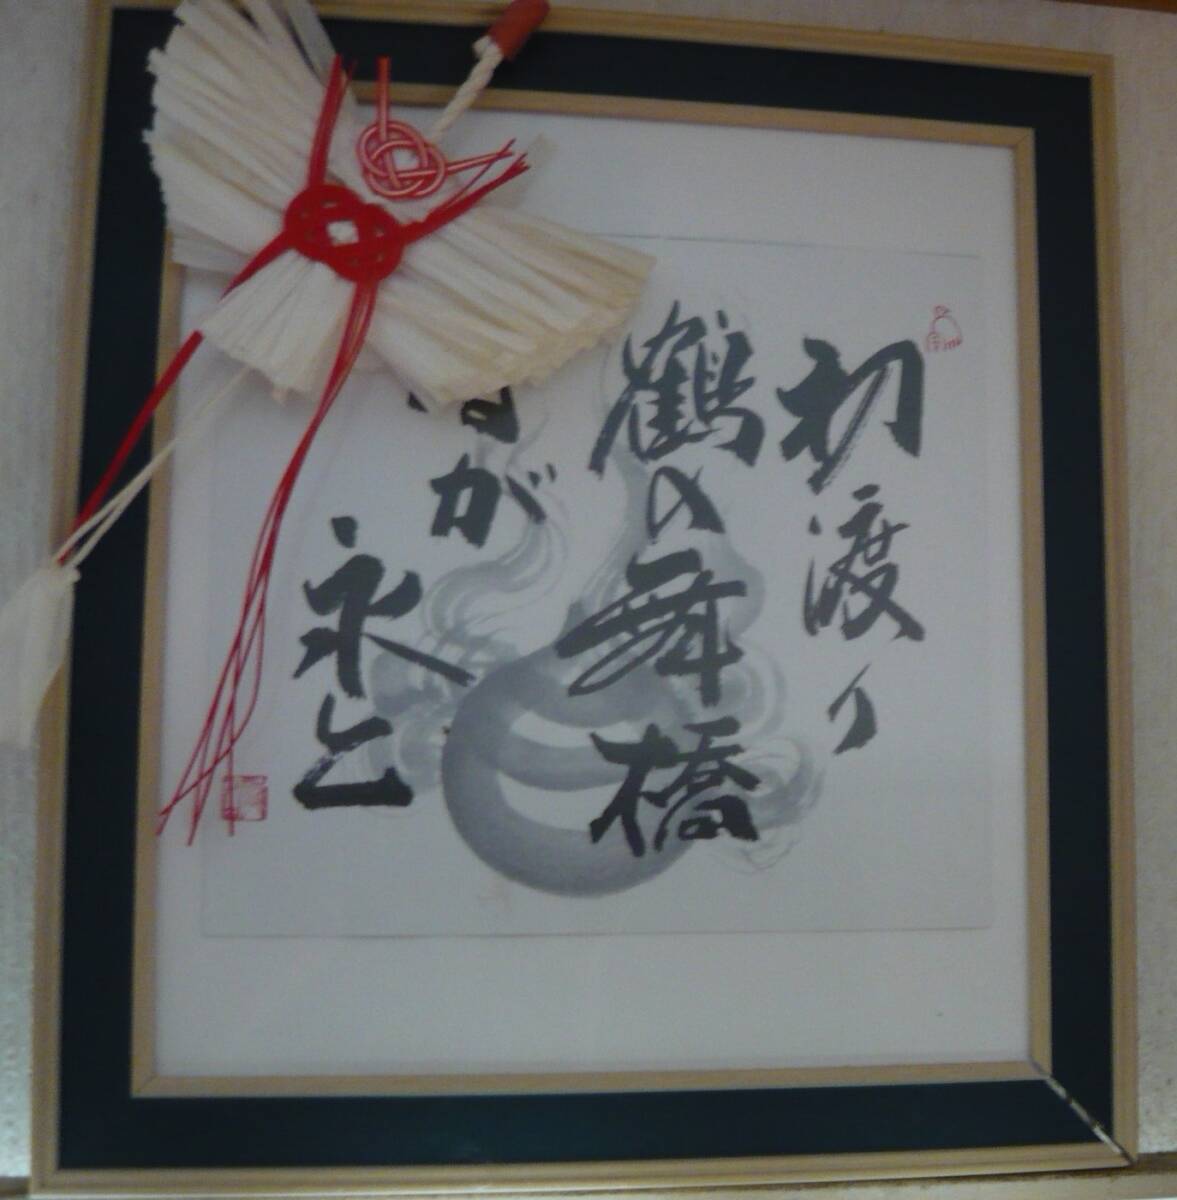 初渡り
鶴の舞橋
が
永と